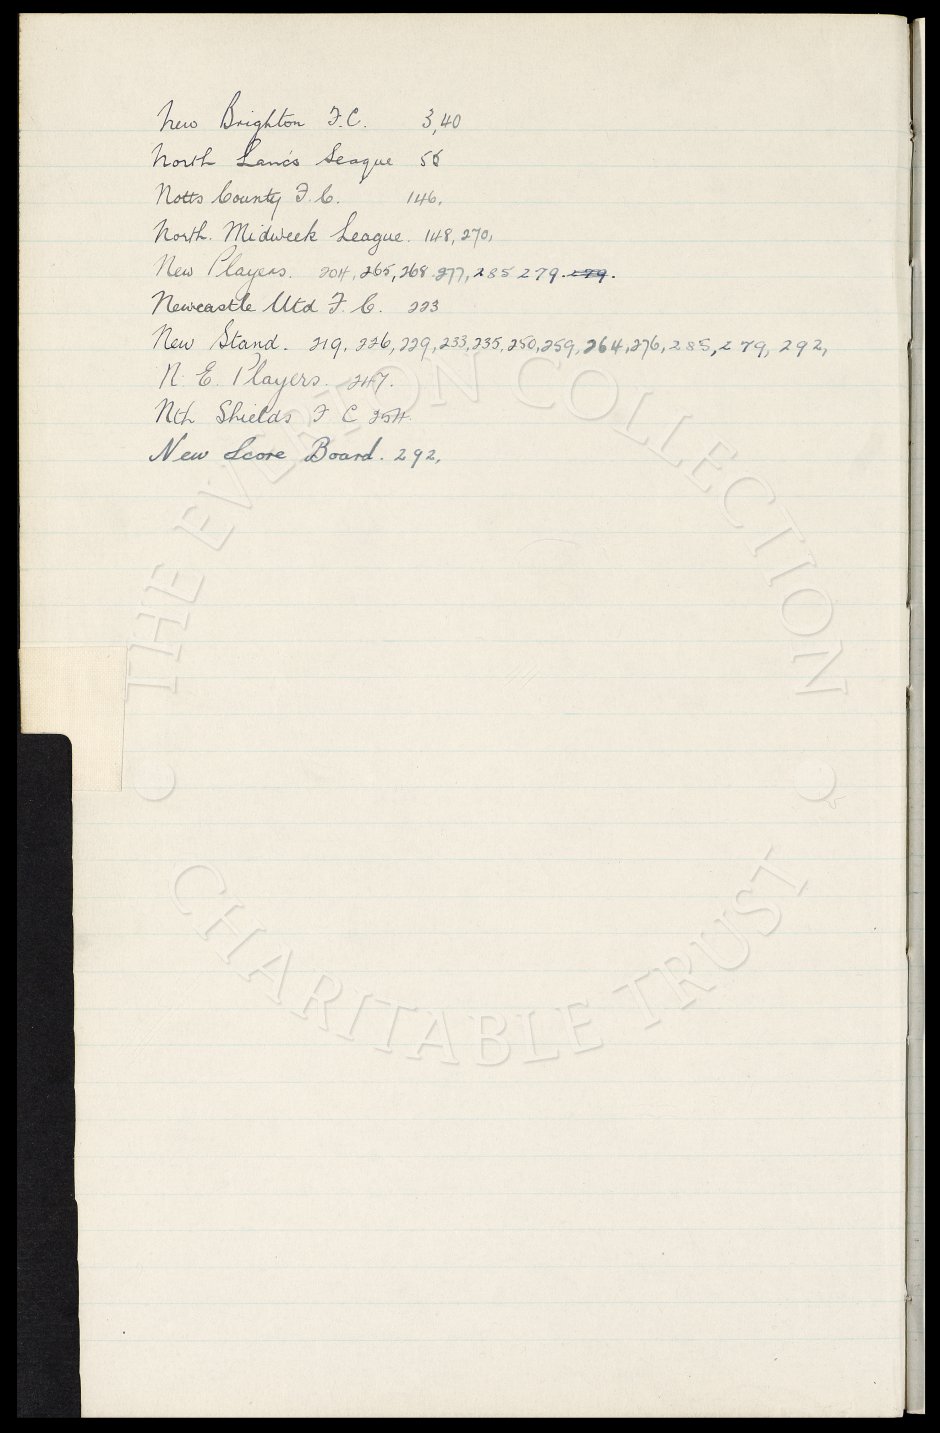 New Brighton F.C. 3,40
North Lancs League 56
Notts County F.C. 146.
North. Midweek League. 148, 270,
New Players. 204, 265, 268. 277, 285 279. 279.
Newcastle Utd F.C. 223
New Stand. 219, 226, 229, 233, 235, 250, 259, 264, 276, 285, 279, 292,
N. E. Players. 247.
Nth Shields F C 254.
New Score Board. 292,
THE EVERTON COLLECTION
CHARITABLE TRUST